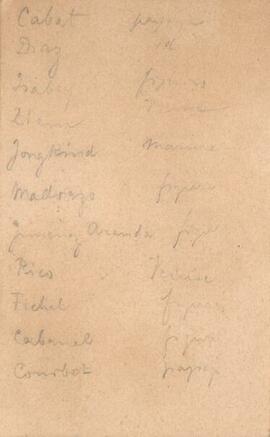 Cabat paysa
Diaz id
Isabey figures
Ziem Venise
Jongkind Marine
Madrazo figure
Jimenez Aranda figu
Rico Venise
Fichel figures
Cabanel figure
Courbet paysag